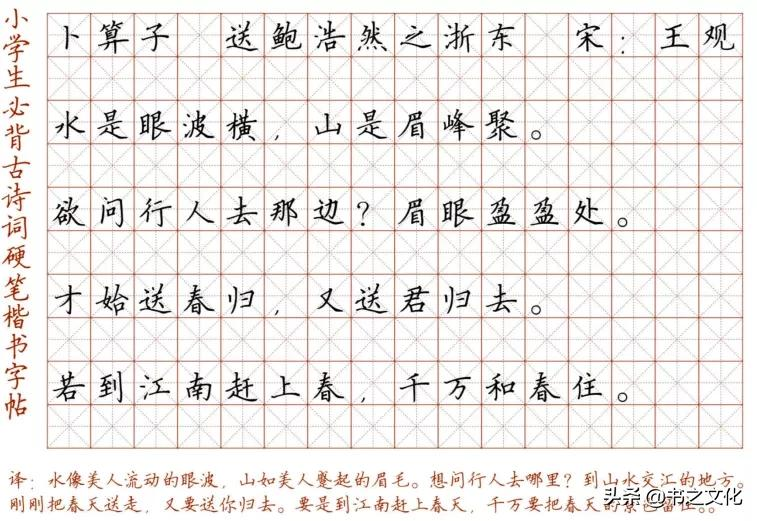 小学生必背古诗词硬笔楷书字帖
卜算子 送鲍浩然之浙东 宋：王观
水是眼波横，山是眉峰聚。
欲问行人去那边？眉眼盈盈处。
才始送春归，又送君归去。
若到江南赶上春，千万和春住。
译：水像美人流动的眼波，山如美人蹙起的眉毛。想问行人去哪里？到山水交汇的地方。
刚刚把春天送走，又要送你归去。要是到江南赶上春天，千万要把春天的景色留住。。
头条 @书之文化